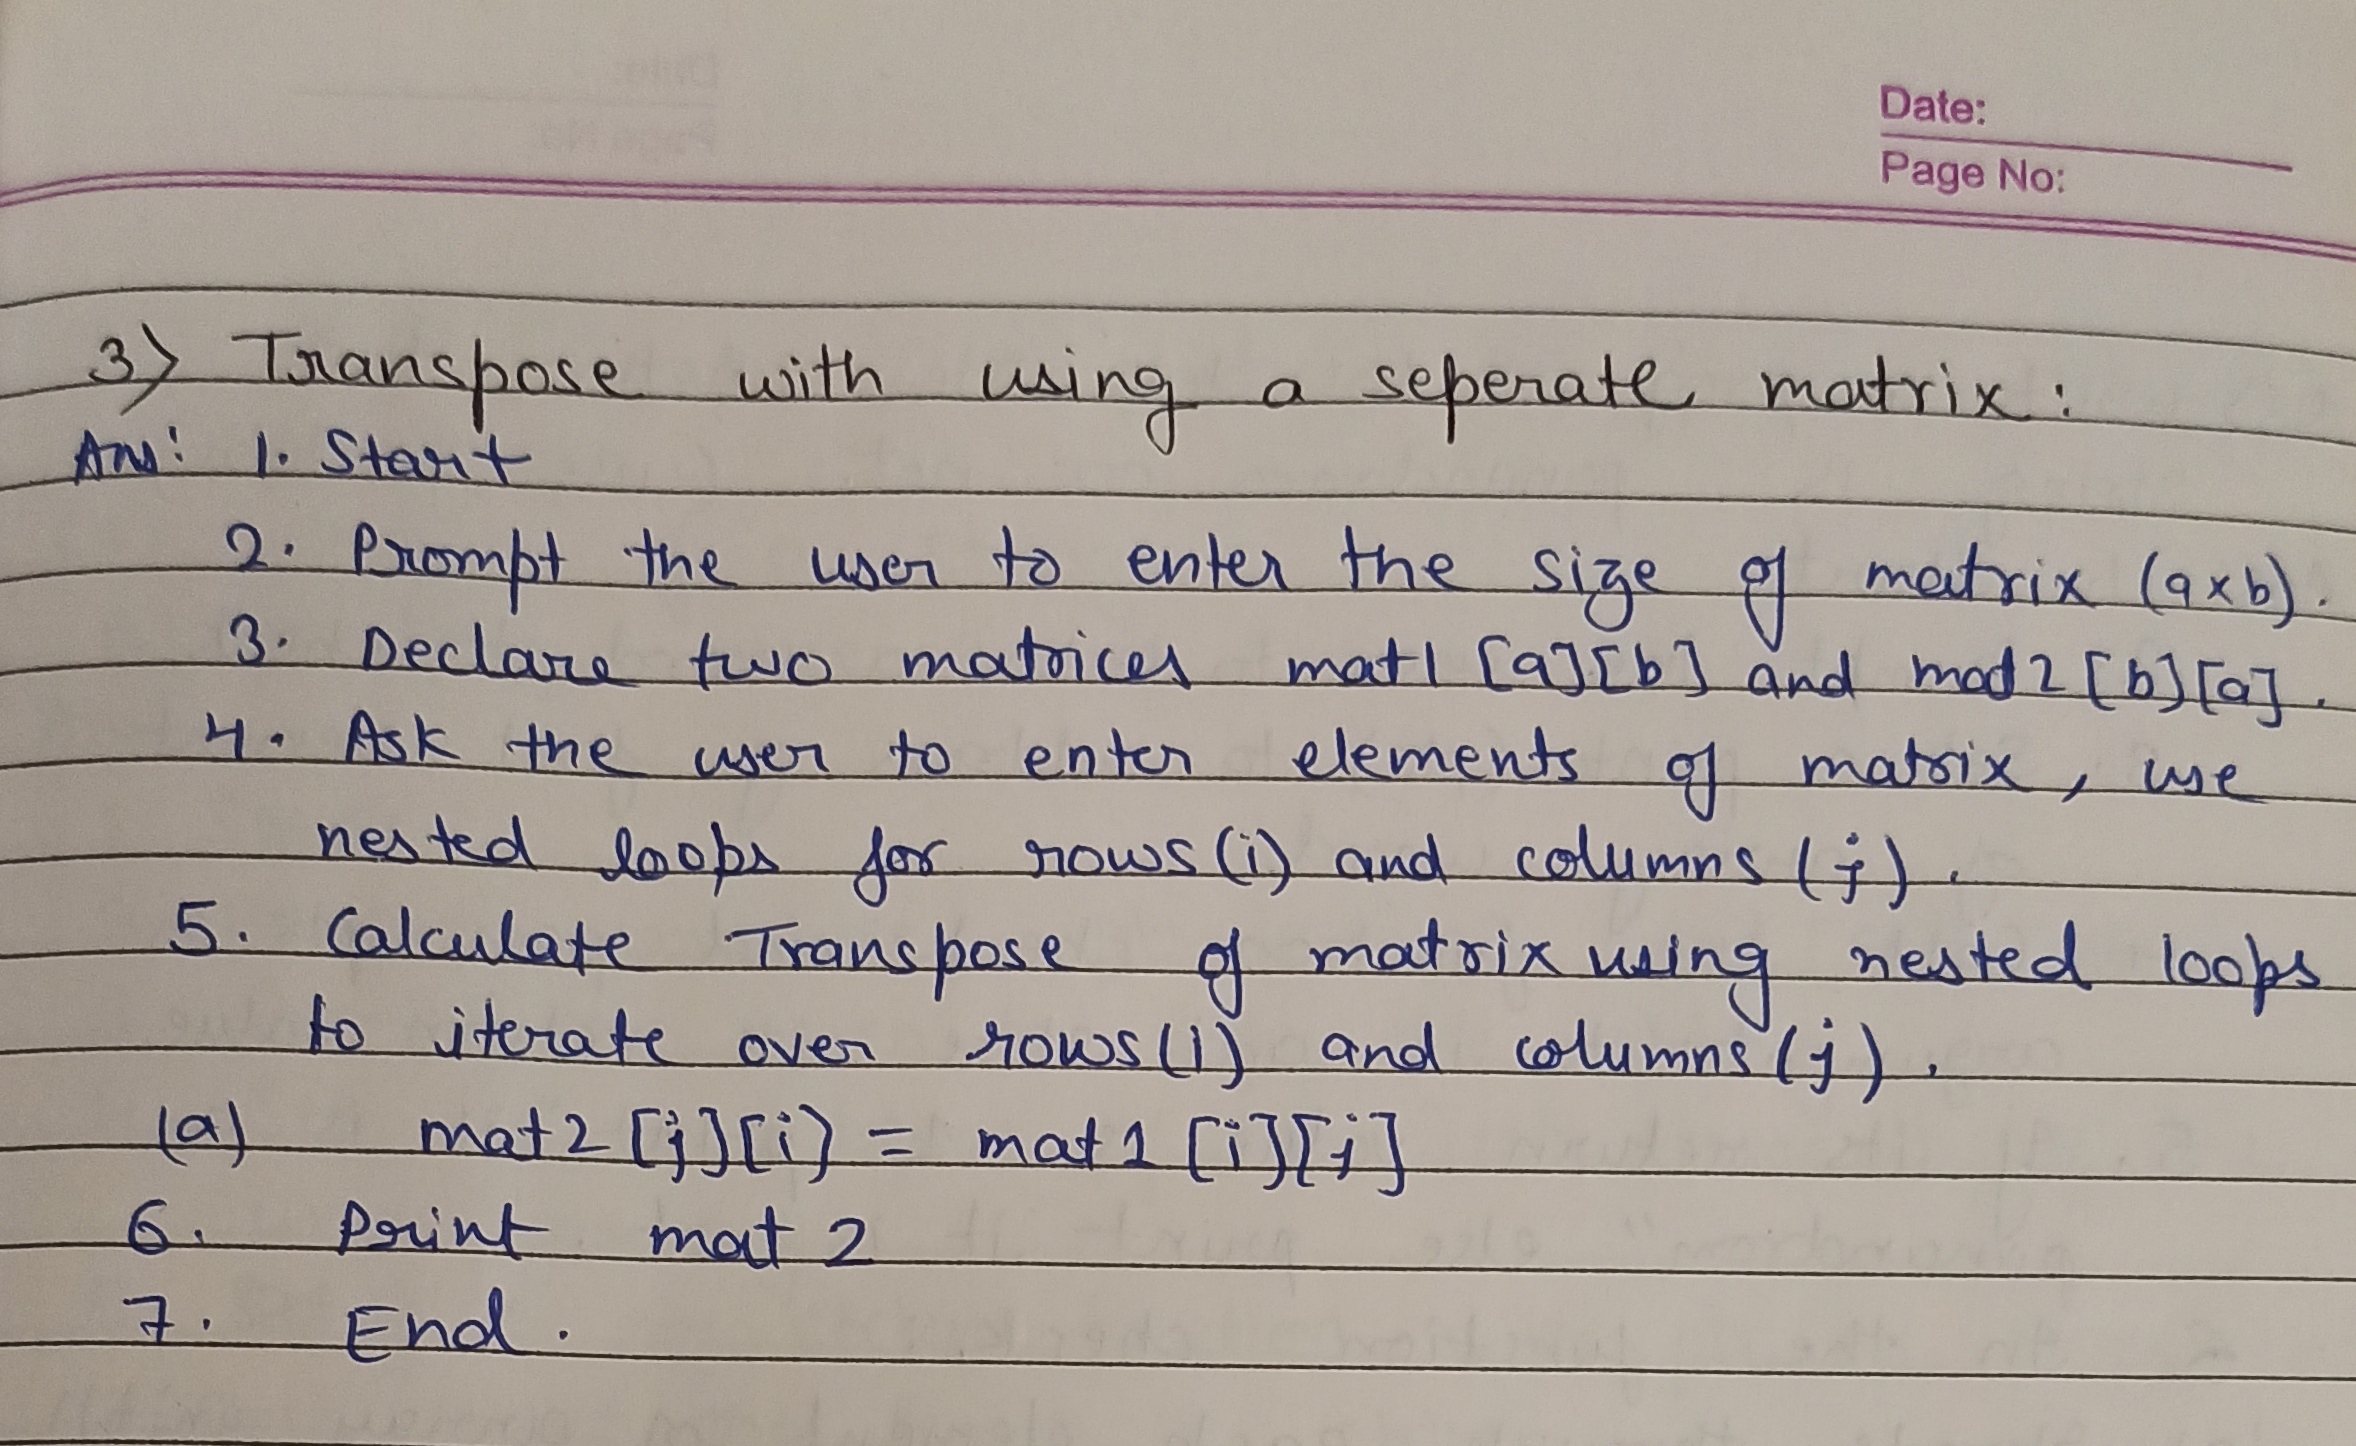 Date:
Page No:
3) Transpose with using a seperate matrix:
Ans: 1. Start
2. Prompt the user to enter the size of matrix (axb).
3. Declare two matrices mat1 [a][b] and mat2 [b][a].
4. Ask the user to enter elements of matrix, use
nested loops for rows (i) and columns (j).
5. Calculate Transpose of matrix using nested loops
to iterate over rows (i) and columns (j).
(a) mat2 [j][i] = mat1 [i][j]
6. Print mat 2
7. End.